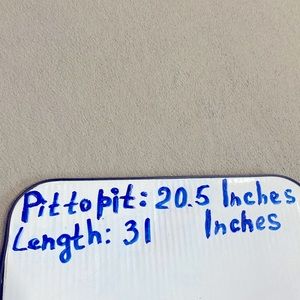 Pit to pit: 20.5 Inches
Length: 31 Inches